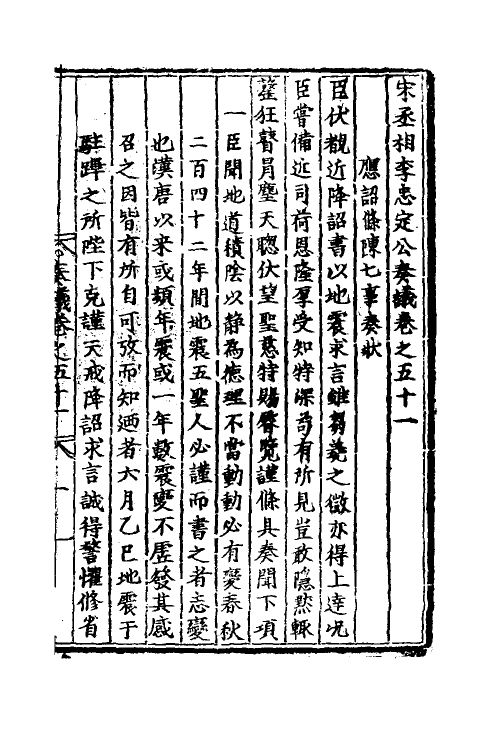 宋丞相李忠定公奏議卷之五十一
應詔條陳七事奏狀
臣伏覩近降詔書以地震求言雖芻蕘之微亦得上達况
臣嘗備近司荷恩隆厚受知特深苟有所見豈敢隱黙輒
罄狂瞽冒瀆天聰伏望聖慈特賜睿覽謹條具奏聞下項
一臣聞地道積陰以静為德理不當動動必有變春秋
二百四十二年間地震五聖人必謹而書之者志變
也漢唐以来或頻年震或一年數震變不虚發其感
召之因皆有所自可攷而知迺者六月乙巳地震于
駐蹕之所陛下克謹天戒降詔求言誠得警懼修省
奏議卷之五十一 一